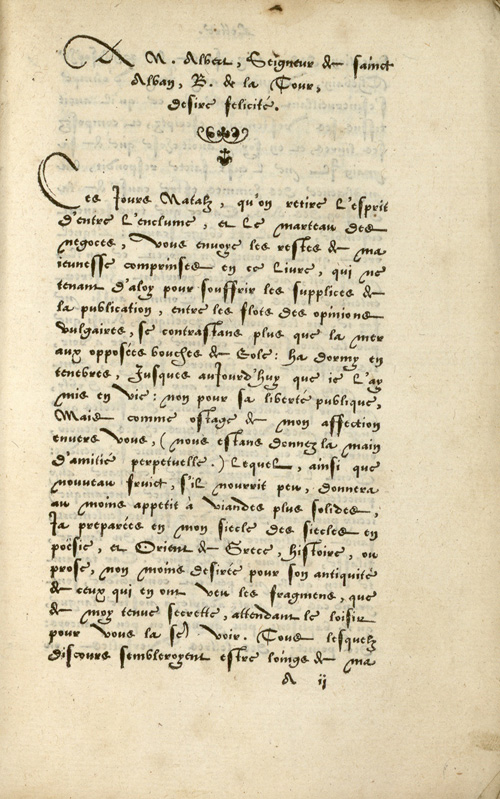 A M. Albert, Seigneur de sainct
Alban, B. de la Tour,
desire felicité.
Ces Jours Natalz, qu'on retire L'esprit
d'entre L'enclume, et Le marteau des
negoces, Vous envoye les restes de ma
ieunesse comprinses en ce Livre, qui ne
tenant d'aloy pour souffrir les supplices de
la publication, entre les flots des opinions
vulgaires, se contrastans plus que la mer
aux opposées bouches de Eole: ha dormy en
tenebres, Jusques aujourd'huy que ie L'ay
mis en Vie: non pour sa liberté publique,
Mais comme ostage de mon affection
envers Vous, (nous estans donnez la main
d'amitié perpetuelle.) Lequel, ainsi que
nouveau fruict, s'il nourrit peu, donnera
au moins appetit à Viandes plus solides,
Ja preparées en mon siecle des siecles en
poësie, et Orient de Grece, histoire, ou
prose, non moins desirée pour son antiquité
de ceux qui en ont veu les fragmens, que
de moy tenue secrette, attendant le loisir
pour Vous la Voir. Tous lesquelz
discours sembleroyent estre loings de ma
A ij